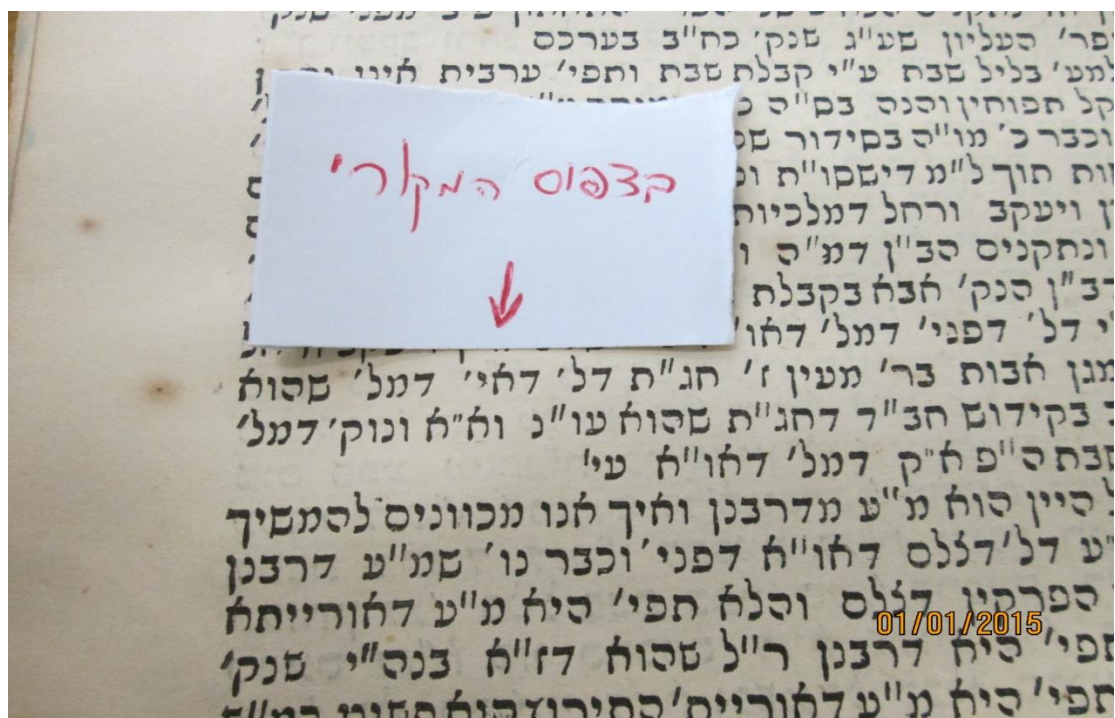 פר' העליון שע"ג שנק' כח"ב בערכם
למע' בליל שבת ע"י קבלת שבת ותפי' ערבית אינו
קל תפוחין והנה בס"ה
וכבר כ' מו"ה בסידור
ות תוך ל"מ דישסו"ת
ן ויעקב ורחל דמלכיות
ונתקנים הב"ן דמ"ה
דב"ן הנק' אבא בקבלת
י דל' דפני' דמל' דאו'
בדפוס המקורי
מגן אבות בר' מעין ז' חג"ת דל' דאי' דמל' שהוא
ב בקידוש חב"ד דחג"ת שהוא עו"נ וא"א ונוק' דמל'
שבת ה"פ א"ק דמל' דאו"א עי'
ל היין הוא מ"ע מדרבנן ואיך אנו מכוונים להמשיך
"ע דל' דצלם דאו"א דפני' וכבר נו' שמ"ע דרבנן
הפרקין דצלם והלא תפי' היא מ"ע דאורייתא
תפי' היא דרבנן ר"ל שהוא דז"א בנה"י שנק'
תפי' היא מ"ע דאוריית'
01/01/2015